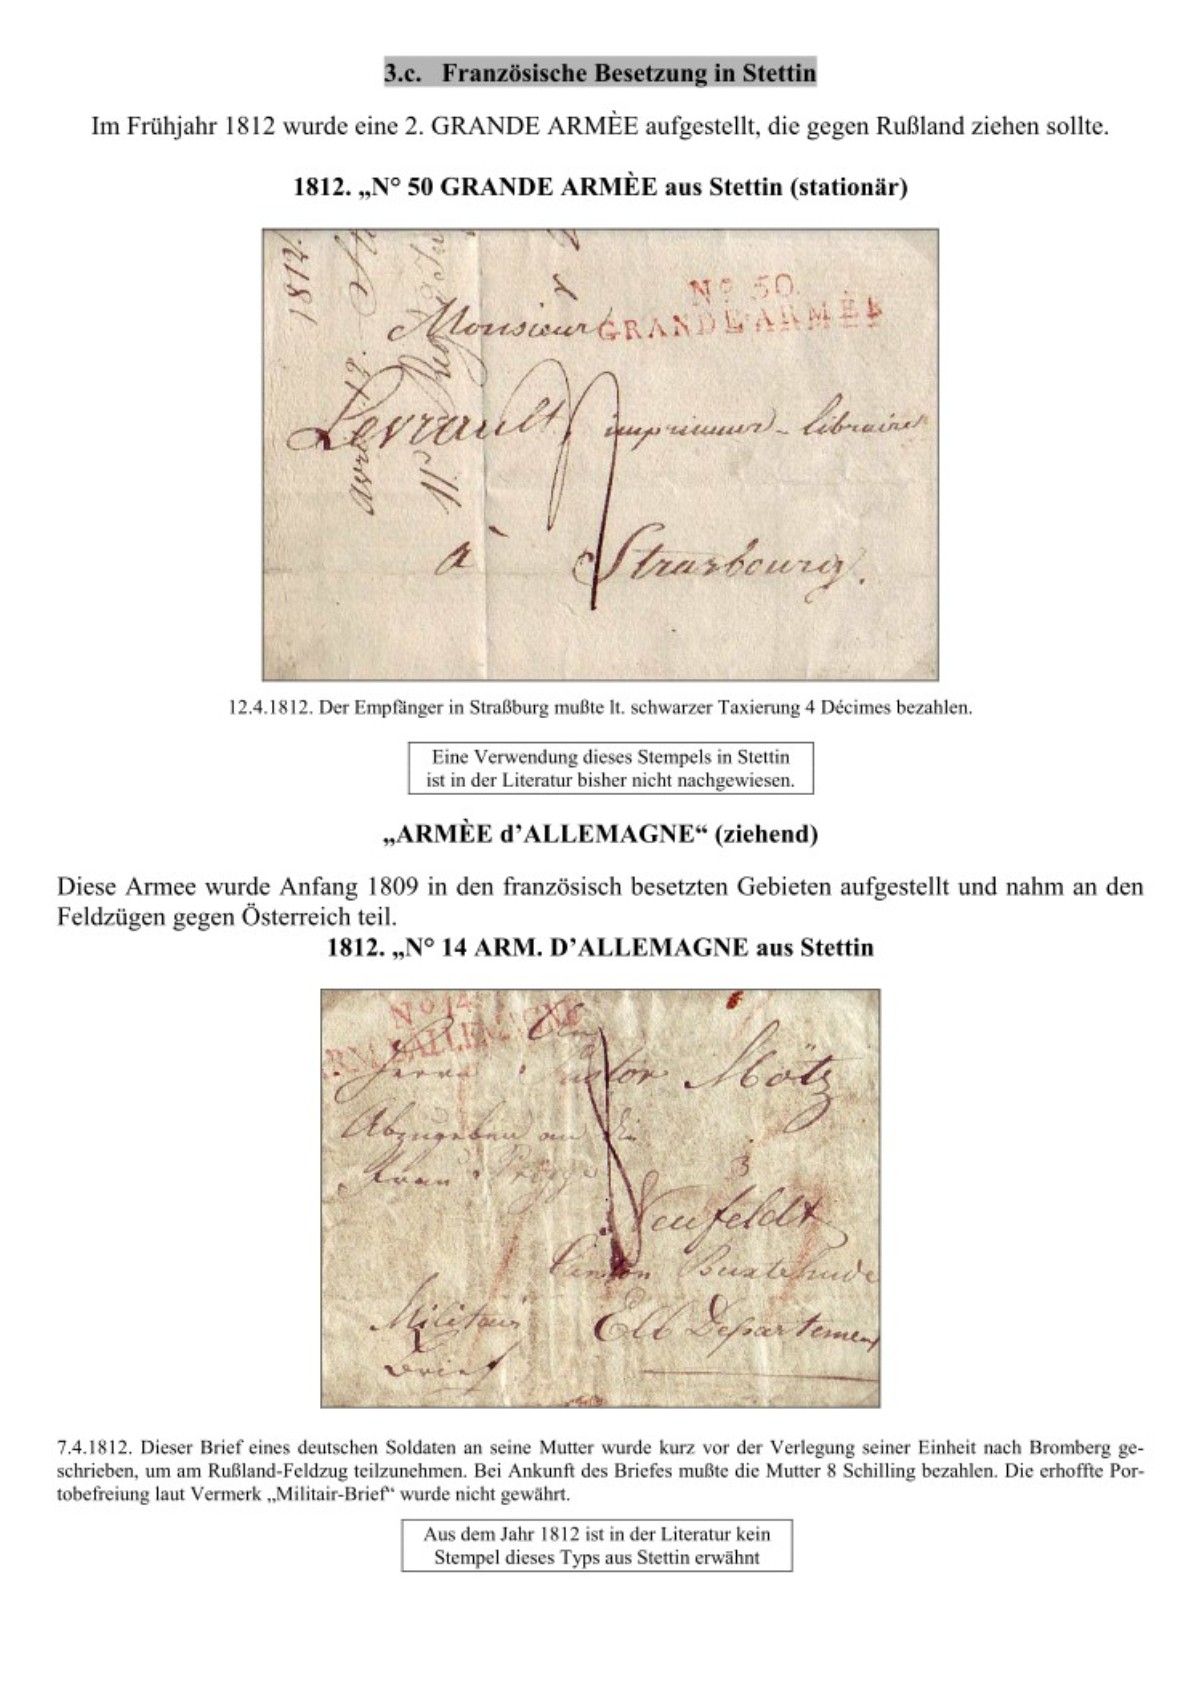 3.c. Französische Besetzung in Stettin
Im Frühjahr 1812 wurde eine 2. GRANDE ARMÈE aufgestellt, die gegen Rußland ziehen sollte.
1812. „N° 50 GRANDE ARMÈE aus Stettin (stationär)
1812.
avril
11.
No 50.
GRANDE ARMÉE
Monsieur
Levrault, imprimeur-libraire
à Strasbourg.
12.4.1812. Der Empfänger in Straßburg mußte lt. schwarzer Taxierung 4 Décimes bezahlen.
Eine Verwendung dieses Stempels in Stettin
ist in der Literatur bisher nicht nachgewiesen.
„ARMÈE d’ALLEMAGNE“ (ziehend)
Diese Armee wurde Anfang 1809 in den französisch besetzten Gebieten aufgestellt und nahm an den
Feldzügen gegen Österreich teil.
1812. „N° 14 ARM. D’ALLEMAGNE aus Stettin
No 14
RM. D'ALLEMAGNE
An
Herrn Pastor Mötz
Abzugeben an die
Frau
Neufeldt
Canton Buxtehude
Militair Elb Departement
Brief
7.4.1812. Dieser Brief eines deutschen Soldaten an seine Mutter wurde kurz vor der Verlegung seiner Einheit nach Bromberg ge-
schrieben, um am Rußland-Feldzug teilzunehmen. Bei Ankunft des Briefes mußte die Mutter 8 Schilling bezahlen. Die erhoffte Por-
tobefreiung laut Vermerk „Militair-Brief“ wurde nicht gewährt.
Aus dem Jahr 1812 ist in der Literatur kein
Stempel dieses Typs aus Stettin erwähnt